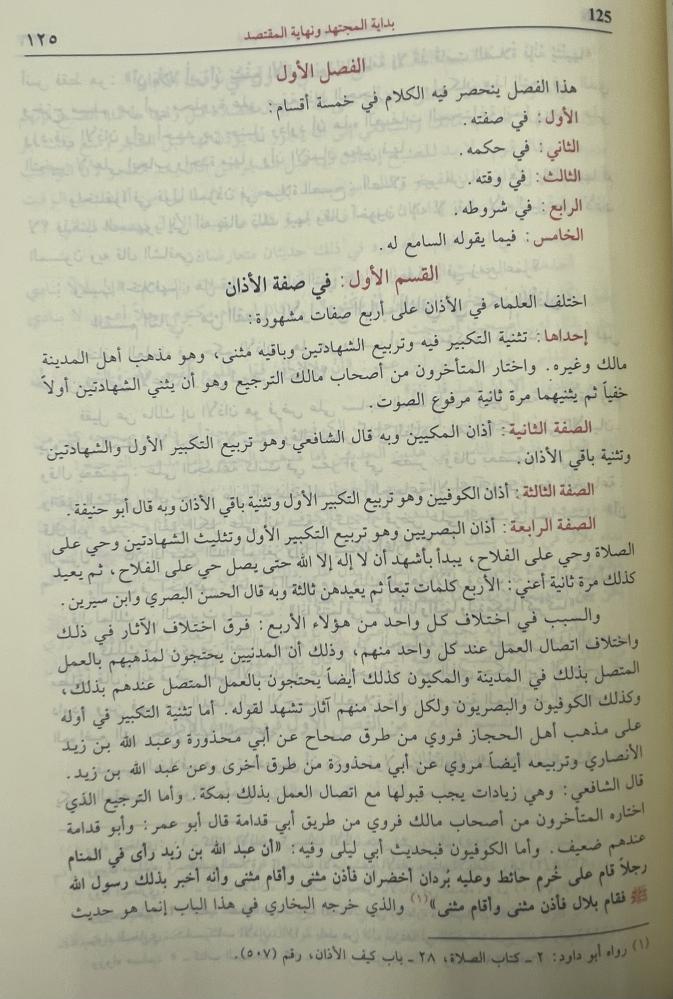 125
بداية المجتهد ونهاية المقتصد
١٢٥
الفصل الأول
هذا الفصل ينحصر فيه الكلام في خمسة أقسام:
الأول: في صفته.
الثاني: في حكمه.
الثالث: في وقته.
الرابع: في شروطه.
الخامس: فيما يقوله السامع له.
القسم الأول: في صفة الأذان
اختلف العلماء في الأذان على أربع صفات مشهورة:
إحداها: تثنية التكبير فيه وتربيع الشهادتين وباقيه مثنى، وهو مذهب أهل المدينة
مالك وغيره. واختار المتأخرون من أصحاب مالك الترجيع وهو أن يثني الشهادتين أولاً
خفياً ثم يثنيهما مرة ثانية مرفوع الصوت.
الصفة الثانية: أذان المكيين وبه قال الشافعي وهو تربيع التكبير الأول والشهادتين
وتثنية باقي الأذان.
الصفة الثالثة: أذان الكوفيين وهو تربيع التكبير الأول وتثنية باقي الأذان وبه قال أبو حنيفة.
الصفة الرابعة: أذان البصريين وهو تربيع التكبير الأول وتثليث الشهادتين وحي على
الصلاة وحي على الفلاح، يبدأ بأشهد أن لا إله إلا الله حتى يصل حي على الفلاح، ثم يعيد
كذلك مرة ثانية أعني: الأربع كلمات تبعاً ثم يعيدهن ثالثة وبه قال الحسن البصري وابن سيرين.
والسبب في اختلاف كل واحد من هؤلاء الأربع: فرق اختلاف الآثار في ذلك
واختلاف اتصال العمل عند كل واحد منهم، وذلك أن المدنيين يحتجون لمذهبهم بالعمل
المتصل بذلك في المدينة والمكيون كذلك أيضاً يحتجون بالعمل المتصل عندهم بذلك،
وكذلك الكوفيون والبصريون ولكل واحد منهم آثار تشهد لقوله. أما تثنية التكبير في أوله
على مذهب أهل الحجاز فروي من طرق صحاح عن أبي محذورة وعبد الله بن زيد
الأنصاري وتربيعه أيضاً مروي عن أبي محذورة من طرق أخرى وعن عبد الله بن زيد.
قال الشافعي: وهي زيادات يجب قبولها مع اتصال العمل بذلك بمكة. وأما الترجيع الذي
اختاره المتأخرون من أصحاب مالك فروي من طريق أبي قدامة قال أبو عمر: وأبو قدامة
عندهم ضعيف. وأما الكوفيون فبحديث أبي ليلى وفيه: «أن عبد الله بن زيد رأى في المنام
رجلاً قام على خُرم حائط وعليه بُردان أخضران فأذن مثنى وأقام مثنى وأنه أخبر بذلك رسول الله
ﷺ فقام بلال فأذن مثنى وأقام مثنى»(١) والذي خرجه البخاري في هذا الباب إنما هو حديث
(١) رواه أبو داود: ٢ ـ كتاب الصلاة، ٢٨ ـ باب كيف الأذان، رقم (٥٠٧).